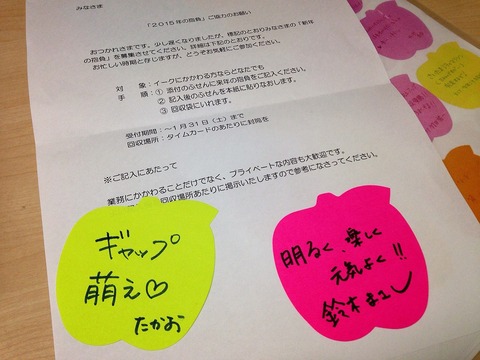 みなさま
「2015年の抱負」ご協力のお願い
おつかれさまです。少し遅くなりましたが、標記のとおりみなさまの「新年
の抱負」を募集させてください。詳細は下記のとおりです。
お忙しい時期と存じますが、どうぞお気軽にご参加ください。
対　象：イークにかかわる方ならどなたでも
手　順：① 添付のふせんに来年の抱負をご記入ください。
② 記入後のふせんを本紙に貼りなおします。
③ 回収袋にいれます。
受付期間：～1月31日（土）まで
回収場所：タイムカードのあたりに封筒を
※ご記入にあたって
業務にかかわることだけでなく、プライベートな内容も大歓迎です。
回収場所あたりに掲示いたしますので参考になさってください。
ギャップ
萌え♡
たかお
明るく、楽しく
元気よく!!
鈴木